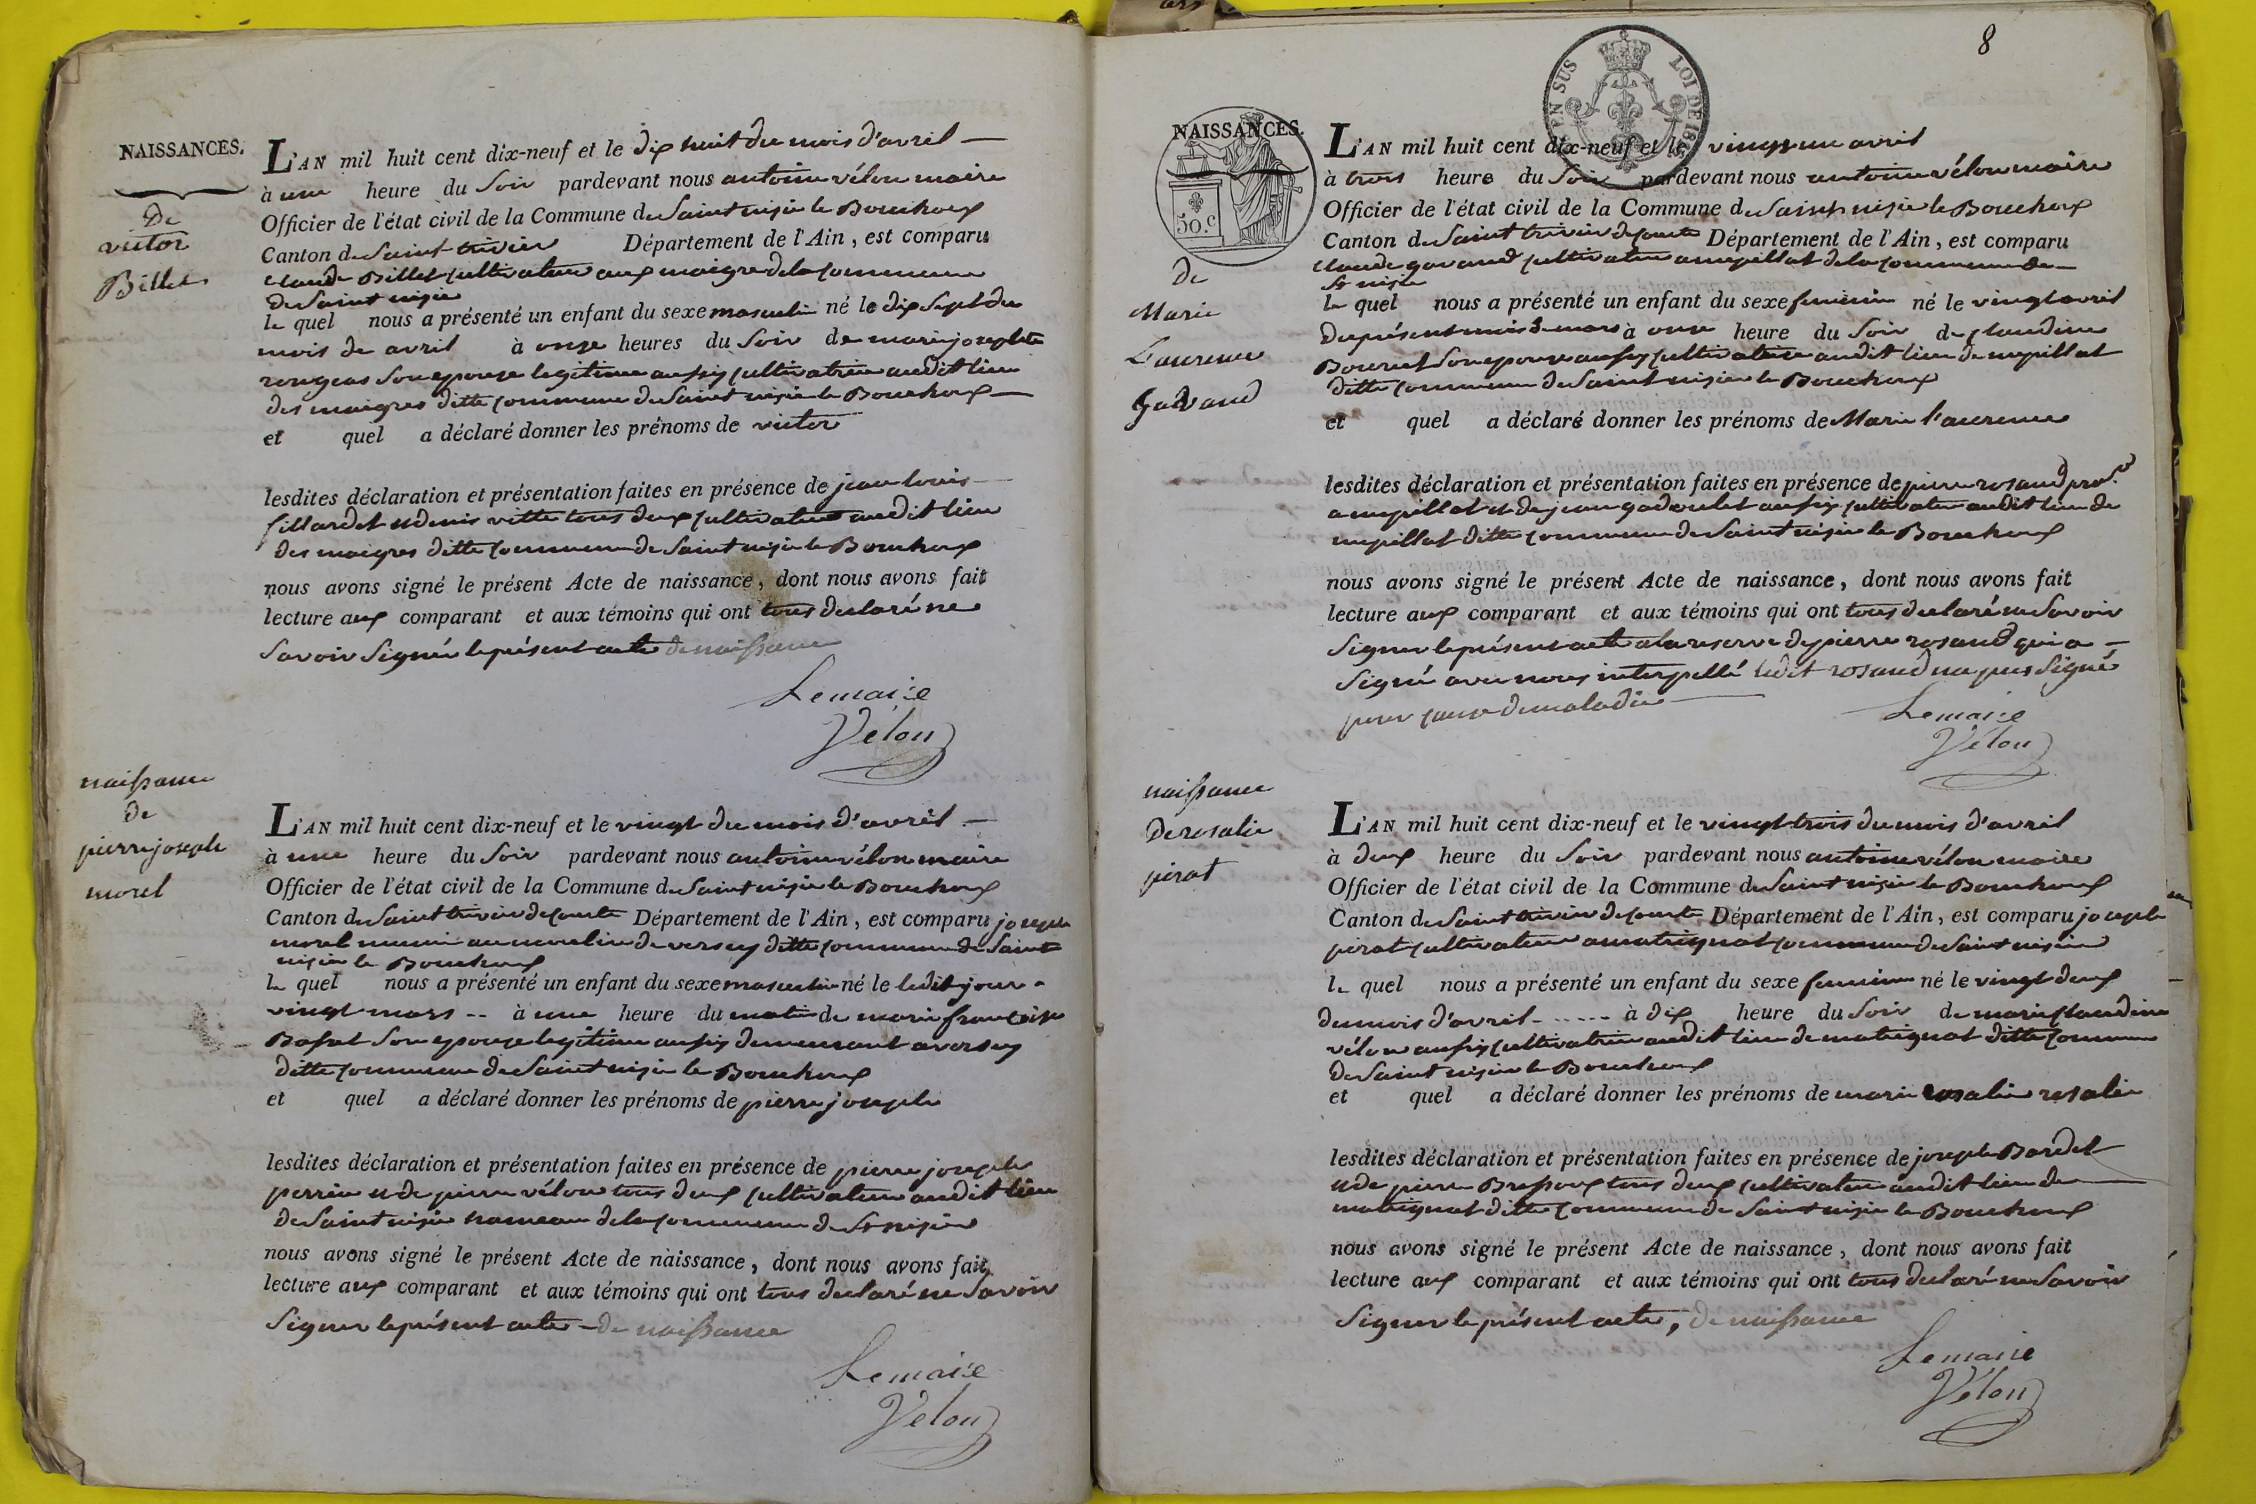 NAISSANCES.
De
victor
Billet
L'AN mil huit cent dix-neuf et le dix huit du mois d'avril
à une heure du Soir pardevant nous antoine vélon maire
Officier de l'état civil de la Commune de Saint nizie le Bouchoux
Canton de Saint trivier Département de l'Ain, est comparu
claude Billet cultivateur aux maigre de la commune
de Saint nizie
le quel nous a présenté un enfant du sexe masculin né le dix Sept du
mois de avril à onze heures du Soir de marie josephte
rongeas Son epouze legitime aussy cultivatrice audit lieu
des maigres ditte commune de Saint nizie le Bouchoux
et quel a déclaré donner les prénoms de victor
lesdites déclaration et présentation faites en présence de jean louis
fillardet et denis vitte tous deux cultivateur audit lieu
des maigres ditte commune de Saint nizie le Bouchoux
nous avons signé le présent Acte de naissance, dont nous avons fait
lecture aux comparant et aux témoins qui ont tous declaré ne
Savoir Signér le présent acte de naissance
Lemaire
Vélon
naissance
de
pierre joseph
morel
L'AN mil huit cent dix-neuf et le vingt du mois d'avril
à une heure du Soir pardevant nous antoine vélon maire
Officier de l'état civil de la Commune de Saint nizie le Bouchoux
Canton de Saint trivier de courte Département de l'Ain, est comparu joseph
morel munie au moulin de versey ditte commune de Saint
nizie le Bouchoux
le quel nous a présenté un enfant du sexe masculin né le ledit jour
vingt mars -- à une heure du matin de marie françoise
Bassat Son epouze legitime aussy demeurant a versey
ditte commune de Saint nizie le Bouchoux
et quel a déclaré donner les prénoms de pierre joseph
lesdites déclaration et présentation faites en présence de pierre joseph
perrin et de pierre vélon tous deux cultivateur audit lieu
de Saint nizie hameau de la commune de St nizie
nous avons signé le présent Acte de naissance, dont nous avons fait
lecture aux comparant et aux témoins qui ont tous declaré ne Savoir
Signer le présent acte - de naissance
Lemaire
Vélon
8
EN SUS LOI DE 18
50. C
NAISSANCES.
de
Marie
Laurence
Gavand
L'AN mil huit cent dix-neuf et le vingt un avril
à trois heure du Soir pardevant nous antoine vélon maire
Officier de l'état civil de la Commune de Saint nizie le Bouchoux
Canton de Saint trivier de courte Département de l'Ain, est comparu
claude gavand cultivateur a mepillat de la commune de
St nizie
le quel nous a présenté un enfant du sexe feminin né le vingt avril
du présent mois de mars à onze heure du Soir de claudine
Bourcet Son epouze aussy cultivatrice audit lieu de mepillat
ditte commune de Saint nizie le Bouchoux
et quel a déclaré donner les prénoms de Marie laurence
lesdites déclaration et présentation faites en présence de pierre rosand
a mepillat et de jean gadoulet aussy cultivateur audit lieu de
mepillat ditte commune de Saint nizie le Bouchoux
nous avons signé le présent Acte de naissance, dont nous avons fait
lecture aux comparant et aux témoins qui ont tous declaré ne Savoir
Signer le présent acte a la reserve de pierre rosand qui a
Signé avec nous interpellé ledit rosand na pas Signé
pour cause de maladie
Lemaire
Vélon
naissance
de rosalie
pirat
L'AN mil huit cent dix-neuf et le vingt trois du mois d'avril
à deux heure du Soir pardevant nous antoine vélon maire
Officier de l'état civil de la Commune de Saint nizie le Bouchoux
Canton de Saint trivier de courte Département de l'Ain, est comparu joseph
pirat cultivateur a matignat commune de Saint nizie
le quel nous a présenté un enfant du sexe feminin né le vingt deux
du mois d'avril ----- à dix heure du Soir de marie claudine
vélon aussy cultivatrice audit lieu de matignat ditte commune
de Saint nizie le Bouchoux
et quel a déclaré donner les prénoms de marie rosalie rosalie
lesdites déclaration et présentation faites en présence de joseph Bardet
et de pierre Bressoux tous deux cultivateur audit lieu de
matignat ditte commune de Saint nizie le Bouchoux
nous avons signé le présent Acte de naissance, dont nous avons fait
lecture aux comparant et aux témoins qui ont tous declaré ne Savoir
Signer le présent acte, de naissance
Lemaire
Vélon